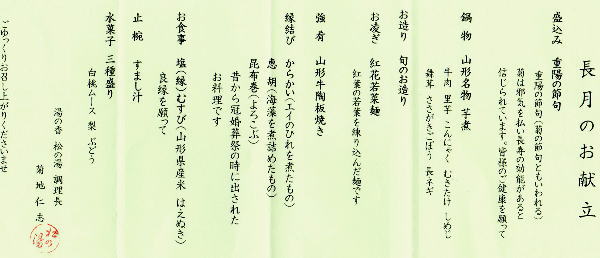 長月のお献立
盛込み 重陽の節句
重陽の節句(菊の節句ともいわれる)
菊は邪気を払い長寿の効能があると
信じられています。皆様のご健康を願って
鍋物 山形名物 芋煮
牛肉 里芋 こんにゃく むきたけ しめじ
舞茸 ささがきごぼう 長ネギ
お造り 旬のお造り
お凌ぎ 紅花若菜麺
紅葉の若葉を練り込んだ麺です
強肴 山形牛陶板焼き
縁結び からかい(エイのひれを煮たもの)
恵胡(海藻を煮詰めたもの)
昆布巻(よろこぶ)
昔から冠婚葬祭の時に出された
お料理です
お食事 塩(縁)むすび(山形県産米 はえぬき)
良縁を願って
止椀 すまし汁
水菓子 三種盛り
白桃ムース 梨 ぶどう
湯の香 松の湯 調理長
菊地仁志
ごゆっくりお召し上がりくださいませ